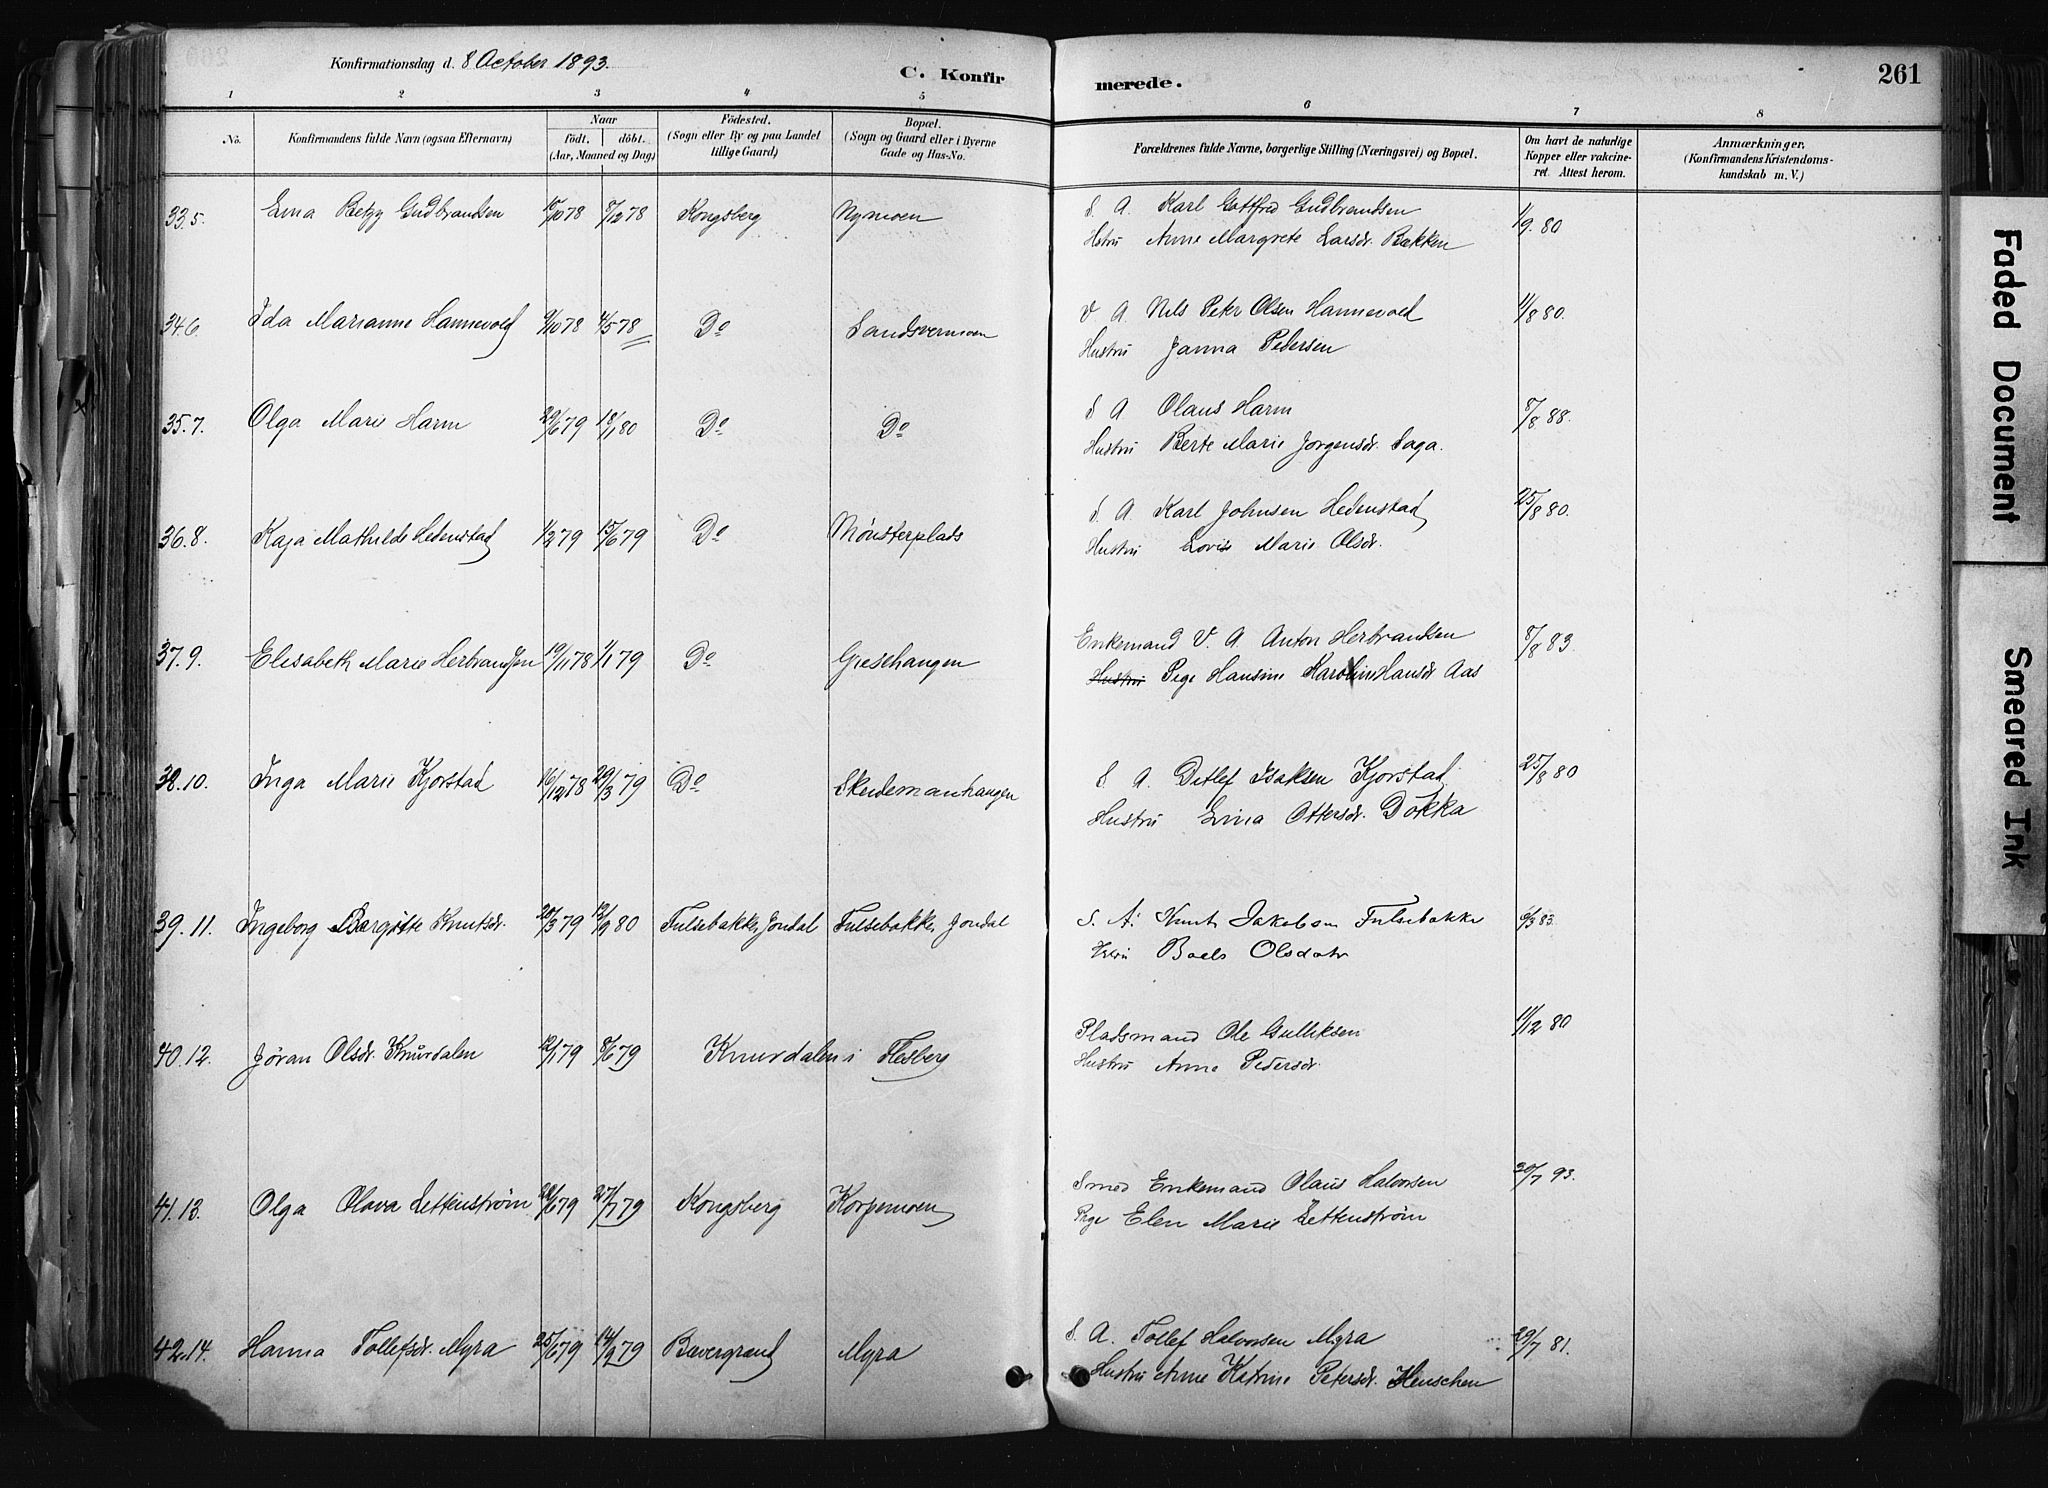 Konfirmationsdag d. 8 October 1893.
C. Konfir
merede.
261
1 2 3 4 5 6 7 8
No.
Konfirmandens fulde Navn (ogsaa Efternavn)
Naar
født. døbt.
(Aar, Maaned og Dag)
Fødested.
(Sogn eller By og paa Landet
tillige Gaard)
Bopæl.
(Sogn og Gaard eller i Byerne
Gade og Hus-No.
Forældrenes fulde Navne, borgerlige Stilling (Næringsvei) og Bopæl.
Om havt de naturlige
Kopper eller vakcine-
ret. Attest herom.
Anmærkninger.
(Konfirmandens Kristendoms-
kundskab m. V.)
33.5. Lina Betzy Gudbrandsen 15/10 78 8/12 78 Kongsberg Nymoen S. A. Karl Gottfred Gudbrandsen 1/9. 80
Hstru Anne Margrete Larsdr. Bækken
34.6 Ida Marianne Hannevold 9/10 78 4/5 78 Do Sandsvermoen V A Nils Peter Olsen Hannevold 11/8 80.
Hustru Janna Pedersen
35.7. Olga Marie Harm 29/6 79 18/1 80 Do Do S A Olaus Harm 8/8 88.
Hustru Berte Marie Jorgensdr. Saga.
36.8. Kaja Mathilde Hedenstad 1/2 79 15/6 79 Do Mønsterplads S. A. Karl Johnsen Hedenstad 25/8 80.
Hustru Lovise Marie Olsdr.
37.9. Elisabeth Marie Herbrandsen 19/11 78 1/1 79 Do Gieshangen Enkemand V. A Anton Herbrandsen 8/8 83.
Hustru Pige Hansine Karoline Hansdr Aas
38.10. Inga Marie Kjorstad 16/12 78 29/3 79 Do Skeidemanhangen S A. Ditlef Isaksen Kjorstad 25/8 80
Hustru Lina Ottersdr. Dokka
39.11. Ingeborg Bargitte Knutsdr. 20/3 79 12/9 80 Fulsebakke, Jondal Fulsebakke, Jondal S. A. Knut Jakobsen Fulsebakke 6/3 83.
Hstru Boels Olsdatr
40.12. Jøran Olsdr. Knurdalen 12/1 79 8/6 79 Knurdalen i Flesberg Pladsmand Ole Gulliksen 11/12 80
Hustru Anne Pedersdr.
41.13. Olga Olava Zettenstrøm 28/6 79 27/7 79 Kongsberg Korpemoen Smed Enkemand Olaus Halvorsen 20/7 93.
Pige Elen Marie Zettenstrøm
42.14. Hanna Tollefsdr. Myra 25/6 79 14/9 79 Bævergrend Myra S. A. Tollef Halvorsen Myra 29/7 81.
Hustru Anne Katrine Petersdr. Henschen
Faded Document
Smeared Ink